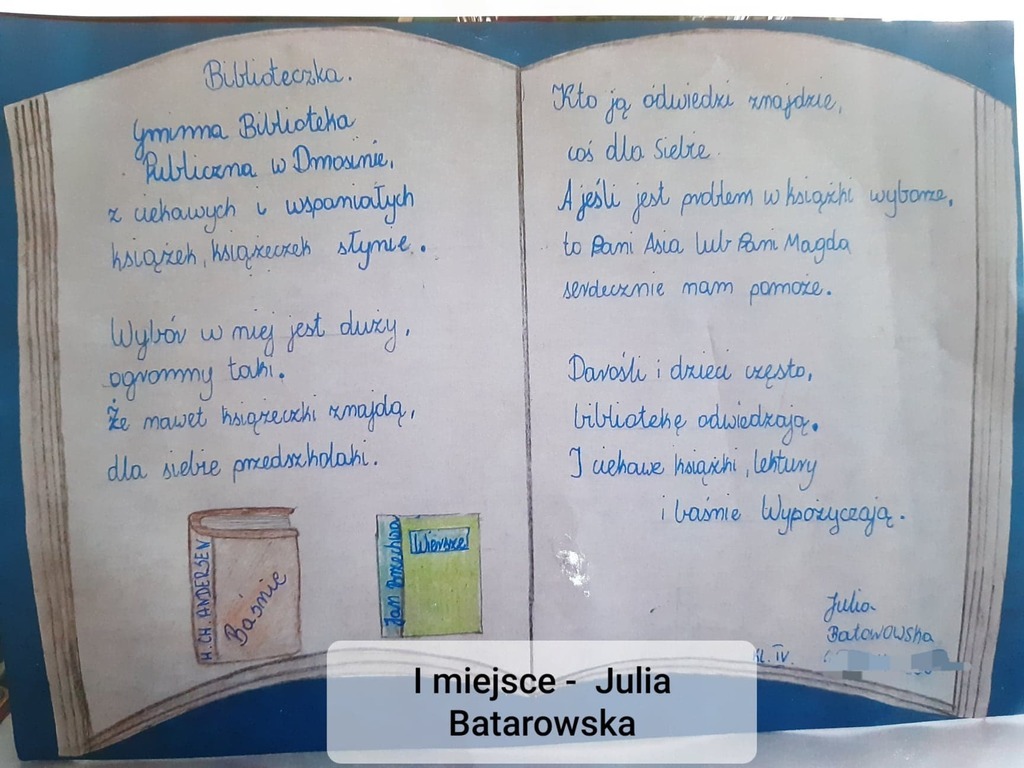 Biblioteczka.
Gminna Biblioteka
Publiczna w Dmosinie,
z ciekawych i wspaniałych
książek, książeczek słynie.
Wybór w niej jest duży,
ogromny taki.
Że nawet książeczki znajdą,
dla siebie przedszkolaki.
H. CH. ANDERSEN
Baśnie
Jan Brzechwa
Wiersze
Kto ją odwiedzi znajdzie,
coś dla Siebie.
A jeśli jest problem w książki wyborze,
to Pani Asia lub Pani Magda
serdecznie nam pomoże.
Dorośli i dzieci często,
bibliotekę odwiedzają.
I ciekawe książki, lektury
i baśnie Wypożyczają.
Julia
Batarowska
kl. IV.
I miejsce - Julia
Batarowska